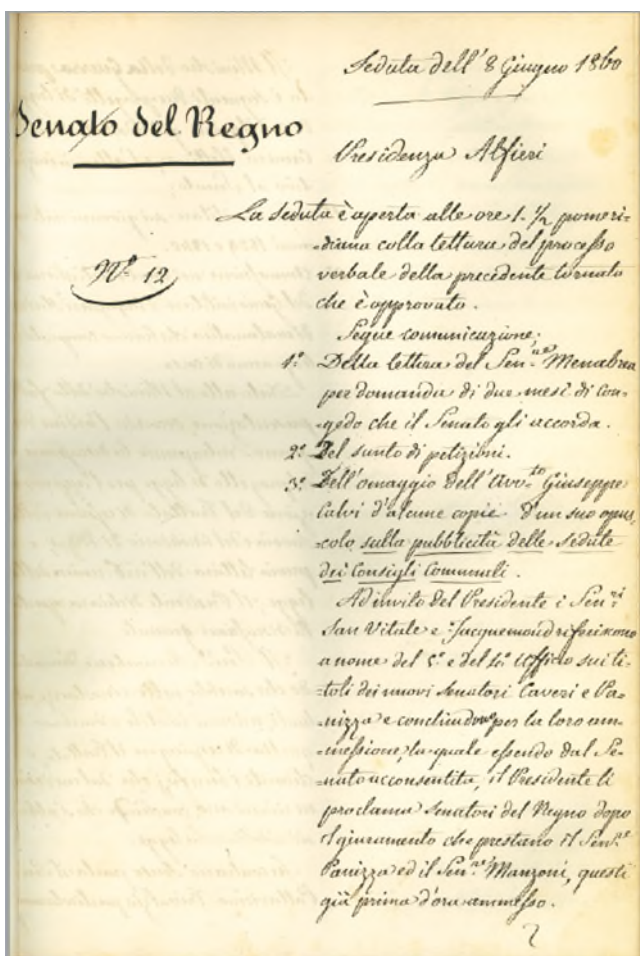 Seduta dell'8 Giugno 1860
Senato del Regno
Presidenza Alfieri
La seduta è aperta alle ore 1. 1/2 pomeri-
=diana colla lettura del processo
Nº 12
verbale della precedente tornata
che è approvato.
Segue comunicazione;
1º Della lettura del Sen.re Menabrea
per domanda di due mesi di con-
=gedo che il Senato gli accorda.
2º Del sunto di petizioni.
3º Dell'omaggio dell'Avv.to Giuseppe
Calvi d'alcune copie d'un suo opus,
=colo sulla pubblicità delle sedute
dei Consigli Comunali.
Ad invito del Presidente i Sen.ri
San Vitale e Jacquemoud riferiscono
a nome del 5º e del Uffizio sui ti-
=toli dei nuovi Senatori Caveri e Pa-
=nizza e concludono per la loro am-
=messione, la quale essendo dal Se-
=nato acconsentita, il Presidente li
proclama Senatori del Regno dopo
il giuramento che prestano il Sen.re
Panizza ed il Sen.re Manzoni, questi
già prima d'ora ammesso.